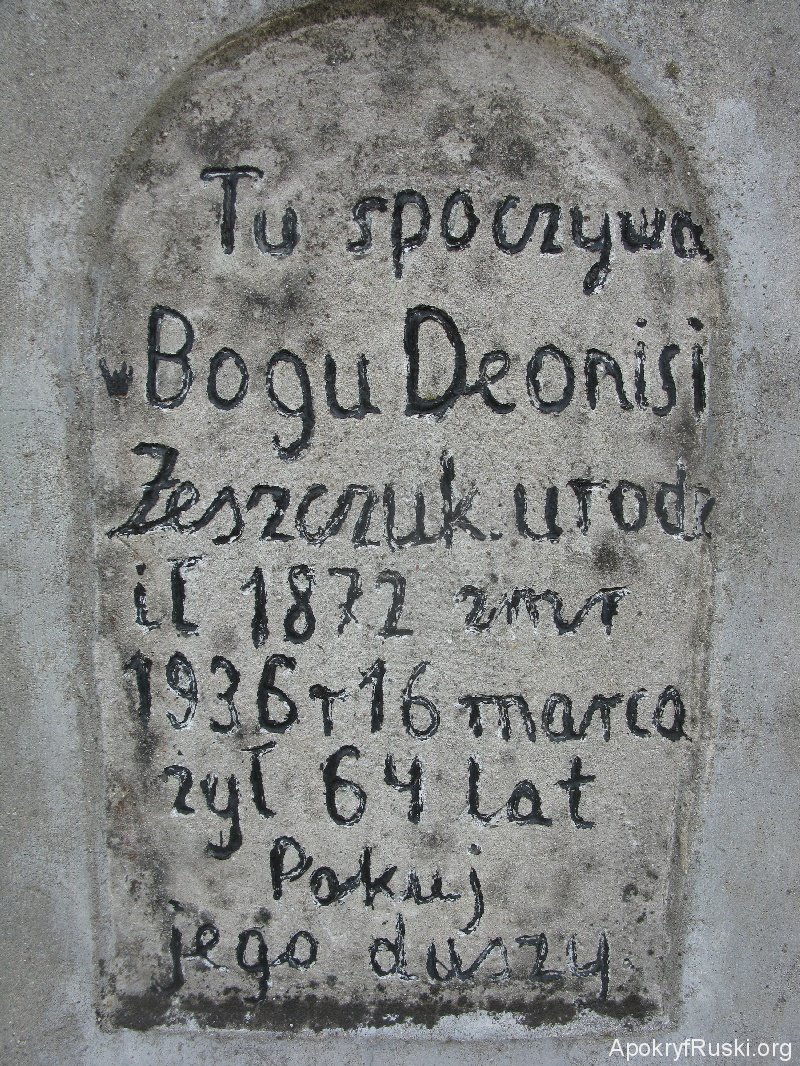 Tu spoczywa
w Bogu Deonisi
Zeszczuk. urodz
ił 1872 zmr
1936 r 16 marca
żył 64 lat
Pokuj
jego duszy.
ApokryfRuski.org